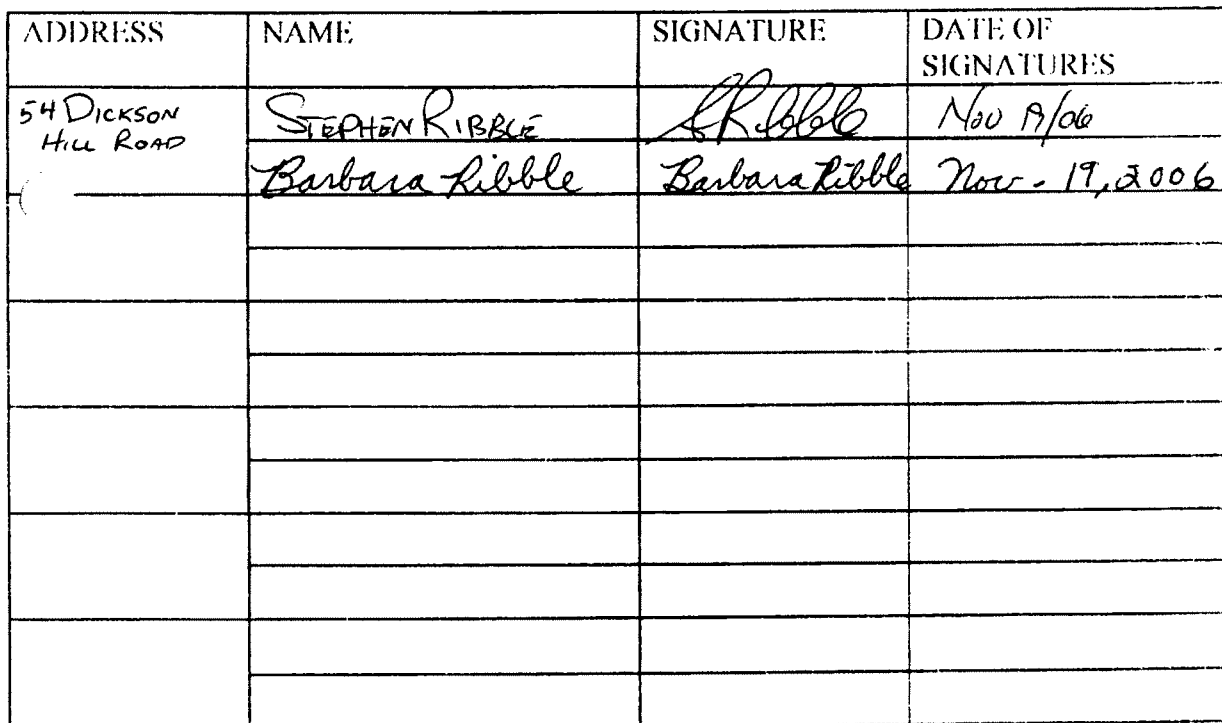 ADDRESS NAME SIGNATURE DATE OF SIGNATURES
54 DICKSON HILL ROAD STEPHEN RIBBLE SRibble Nov 19/06
Barbara Ribble Barbara Ribble Nov. - 19, 2006